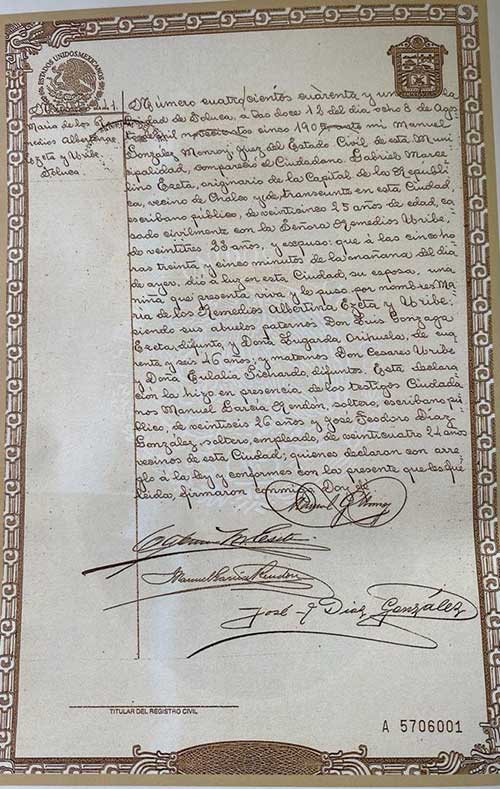 ESTADOS UNIDOS MEXICANOS
Maria de los Re-
medios Albertina
Ezeta y Uribe
Toluca
Número cuatrocientos cuarenta y un
dad de Toluca, a las doce 12 del dia ocho 8 de Agos
to mil cinco 190 mi Manuel
González Monroy, Juez del Estado Civil de esta Muni
cipalidad, compareció el Ciudadano Gabriel Marce
lino Ezeta, originario de la Capital de la Repúbli
ca, vecino de Chalco y de, transeunte en esta Ciudad,
escribano público, de veinticinco 25 años de edad, ca
sado civilmente con la Señora Remedios Uribe,
de veintitres 23 años, y expuso: que á las cinco ho
ras treinta y cinco minutos de la mañana del dia
de ayer, dió á luz en esta Ciudad, su esposa, una
niña que presenta viva y le puso por nombres Ma
ria de los Remedios Albertina Ezeta y Uribe,
siendo sus abuelos paternos Don Luis Gonzaga
Ezeta, difunto, y Doña Lugarda de cua
renta y seis 46 años; y maternos Don Cesareo Uribe
y Doña Eulalia Pichardo, difuntos. Esta declara
ción la hizo en presencia de los testigos Ciudada
nos Manuel Garcia Rendón, soltero, escribano pú
blico, de veintiseis 26 años y José Teodoro Diaz
González, soltero, empleado, de veinticuatro 24 años
vecinos de esta Ciudad; quienes declaran con arre
glo á la ley y conformes con la presente que les fué
leida, firmaron conmigo. Doy fé
Manuel G. Monroy
Manuel Garcia Rendon
José T Diaz González
TITULAR DEL REGISTRO CIVIL
A 5706001